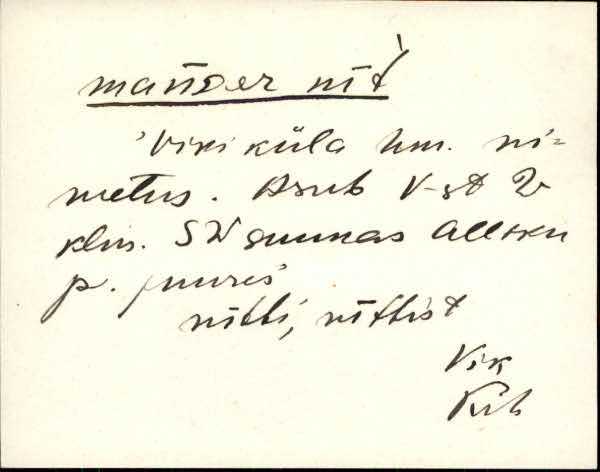 mander nīt́
'Viki küla hm. ni-
metus. Asub V-st 2
klm. SW suunas Allsku
p. juures
nītti, nīttist
Vik
Krb